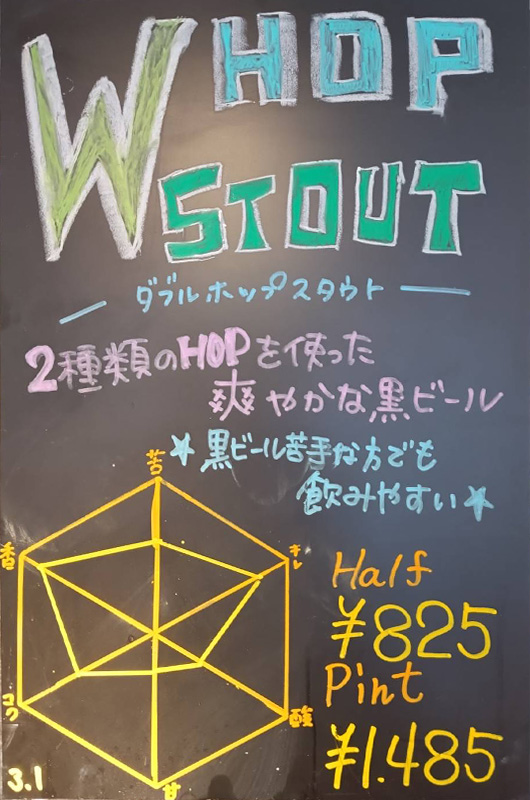 W HOP
STOUT
ダブルホップスタウト
2種類のHOPを使った
爽やかな黒ビール
★黒ビール苦手な方でも
飲みやすい★
苦
香
キレ
コク
酸
甘
Half
¥825
Pint
¥1.485
3.1